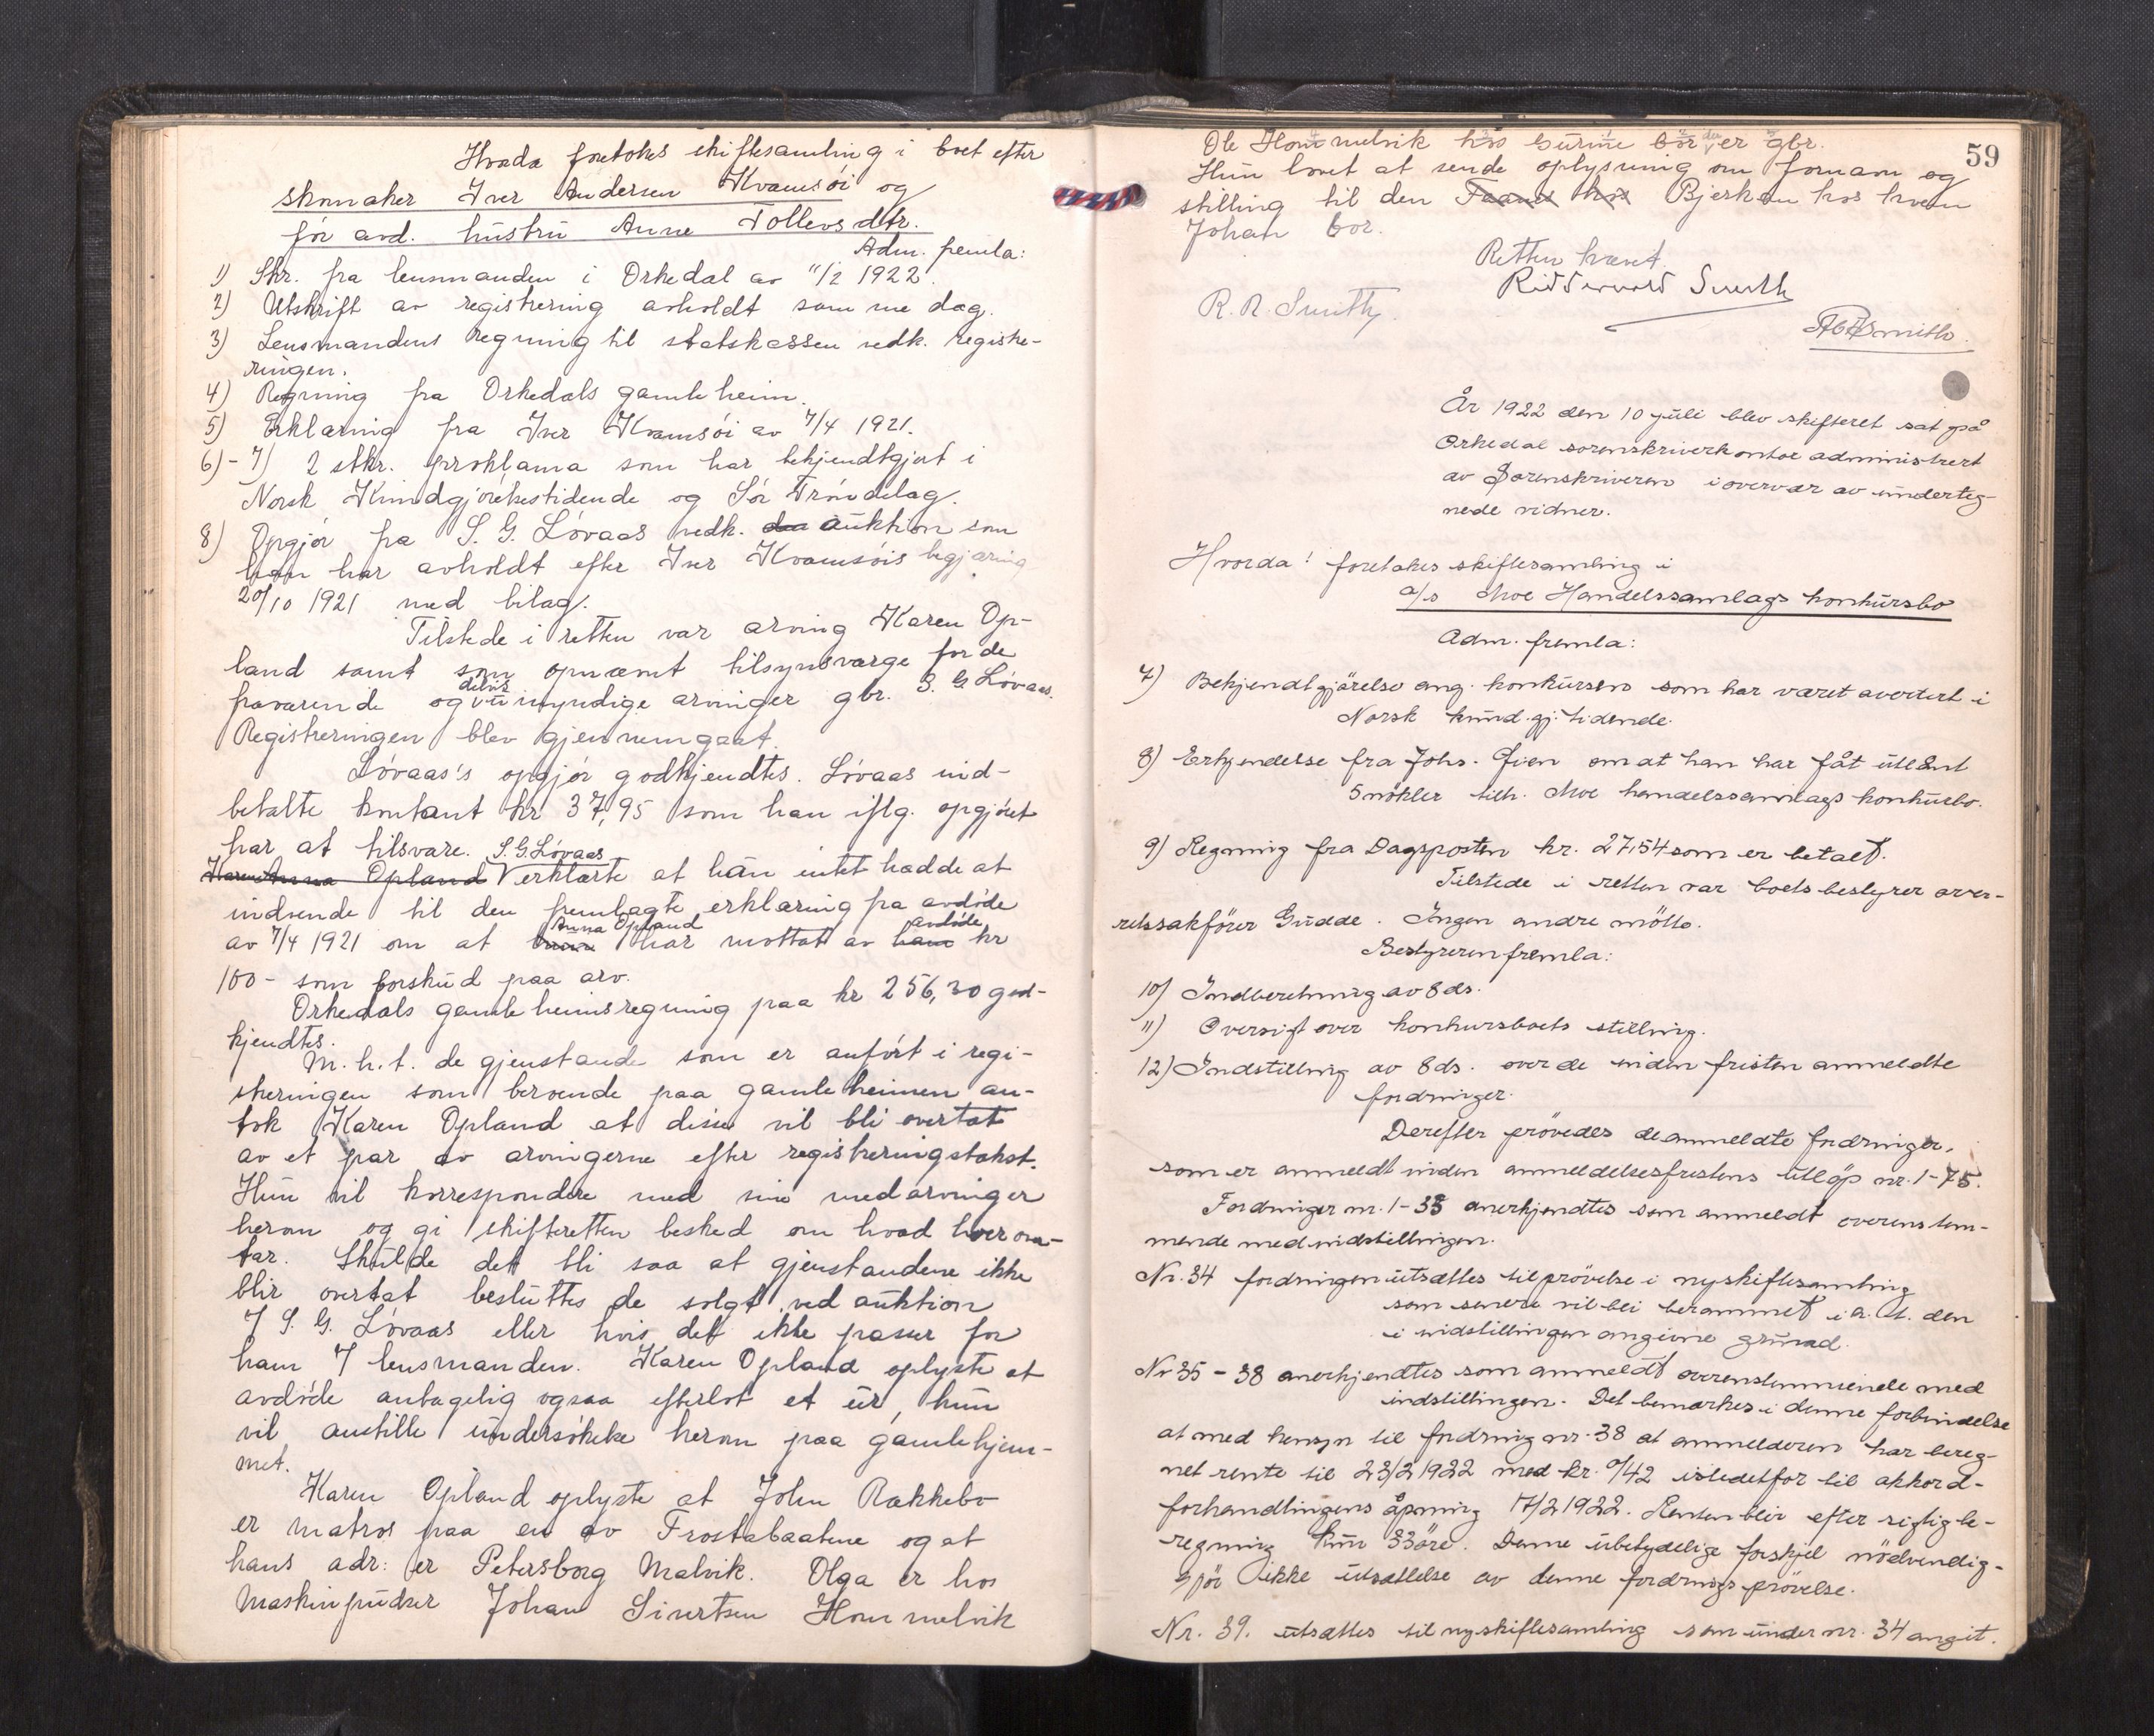 Hvoda foretokes skiftesamling i boet efter
skomaker Iver Andersen Kvamsöi og
for avd. hustru Anne Tollevsdtr.
Adm. femla:
1) Skr. fra lensmanden i Orkedal av 11/2 1922.
2) Utskrift av registrering avholdt samme dag.
3) Lensmandens regning til statskassen vedk. registre-
ringen.
4) Regning fra Orkedals gamleheim.
5) Erklæring fra Iver Kvamsöi av 7/4 1921.
6)-7) 2 stkr. proklama som har bekjendtgjort i
Norsk Kundgjörelsestidende og Sör Tröndelag.
8) Opgjör fra S. G. Lövaas vedk. den auktion som
han har avholdt efter Iver Kvamsöis begjæring
20/10 1921 med bilag.
Tilstede i retten var arving Karen Op-
land samt som opnævnt tilsynsværge for de
fraværende og delvis umyndige arvinger gbr. S. G. Lövaas.
Registreringen blev gjennemgaat.
Lövaas's opgjör godkjendtes. Lövaas ind-
betalte kontant kr 37,95 som han iflg. opgjöret
har at tilsvare. S. G. Lövaas
Karen Anna Opland erklærte at han intet hadde at
indvende til den fremlagte erklæring fra avdöde
av 7/4 1921 om at Anna Opland har mottat av ham avdöde kr
100- som forskud paa arv.
Orkedals gamleheims regning paa kr 256,30 god-
kjendtes.
M.h.t. de gjenstande som er anfört i regi-
streringen som beroende paa gamleheimen an-
tok Karen Opland at disse vil bli overtat
av et par av arvingerne efter registreringstakst.
Hun vil korrespondere med sine medarvinger
herom og gi skifteretten besked om hvad hver over-
tar. Skulde det bli saa at gjenstandene ikke
blir overtat besluttes de solgt ved auktion
v/ S. G. Lövaas eller hvis det ikke passer for
ham v/ lensmanden. Karen Opland oplyste at
avdöde antagelig ogsaa efterlot et ur, hun
vil anstille undersökelse herom paa gamlehjem-
met.
Karen Opland oplyste at John Rakkebo
er matros paa en av Frostabaatene og at
hans adr: er Petersborg Malvik. Olga er hos
Maskinpudser Johan Sivertsen Hommelvik
59
Ole Hommelvik hos Burine bor der er gbr.
Hun lovet at sende oplysning om fornavn og
stilling til den Faanes hos Bjerkan hos hvem
Johan bor.
Retten hævet.
Riddervold Smith
R. R. Smith
År 1922 den 10 juli blev skifteret sat på
Orkedal sorenskriverkontor administrert
av Sorenskriveren i overvær av underteg-
nede vidner.
Hvorda! foretokes skiftesamling i
a/s Moe Handelssamlags konkursbo
Adm. fremla:
7) Bekjendtgjörelse ang. konkursen som har været avertert i
Norsk kund.gj. tidende.
8) Erkjendelse fra Johs. Öien om at han har fåt utlånt
5 nökler tilh. Moe handelssamlags konkursbo.
9) Regning fra Dagsposten kr. 27,54 som er betalt.
Tilstede i retten var boets bestyrer over-
retssakförer Gudde. Ingen andre mötte.
Bestyreren fremla:
10) Indberetning av 8 ds.
11) Oversigt over konkursboets stilling.
12) Indstilling av 8 ds. over de inden fristen anmeldte
fordringer.
Derefter prövedes de anmeldte fordringer,
som er anmeldt inden anmeldelsesfristens utlöp nr. 1-75.
Fordringer nr. 1-33 anerkjendtes som anmeldt overenstem-
mende med indstillingen.
Nr. 34 fordringen utsættes til prövelse i ny skiftesamling
som senere vil bli berammet i a. t. den
i indstillingen angivne grund.
Nr 35 - 38 anerkjendtes som anmeldt overenstemmende med
indstillingen. Det bemærkes i denne forbindelse
at med hensyn til fordring nr. 38 at anmelderen har bereg-
net rente til 23/2 1922 med kr. 0/42 istedetfor til akkord-
forhandlingens åpning 17/2 1922. Renten blir efter rigtig be-
regning kun 33 öre. Denne ubetydelige forskjel nödvendig-
gjör ikke utsættelse av denne fordrings prövelse.
Nr. 39. utsættes til ny skiftesamling som under nr. 34 angit.